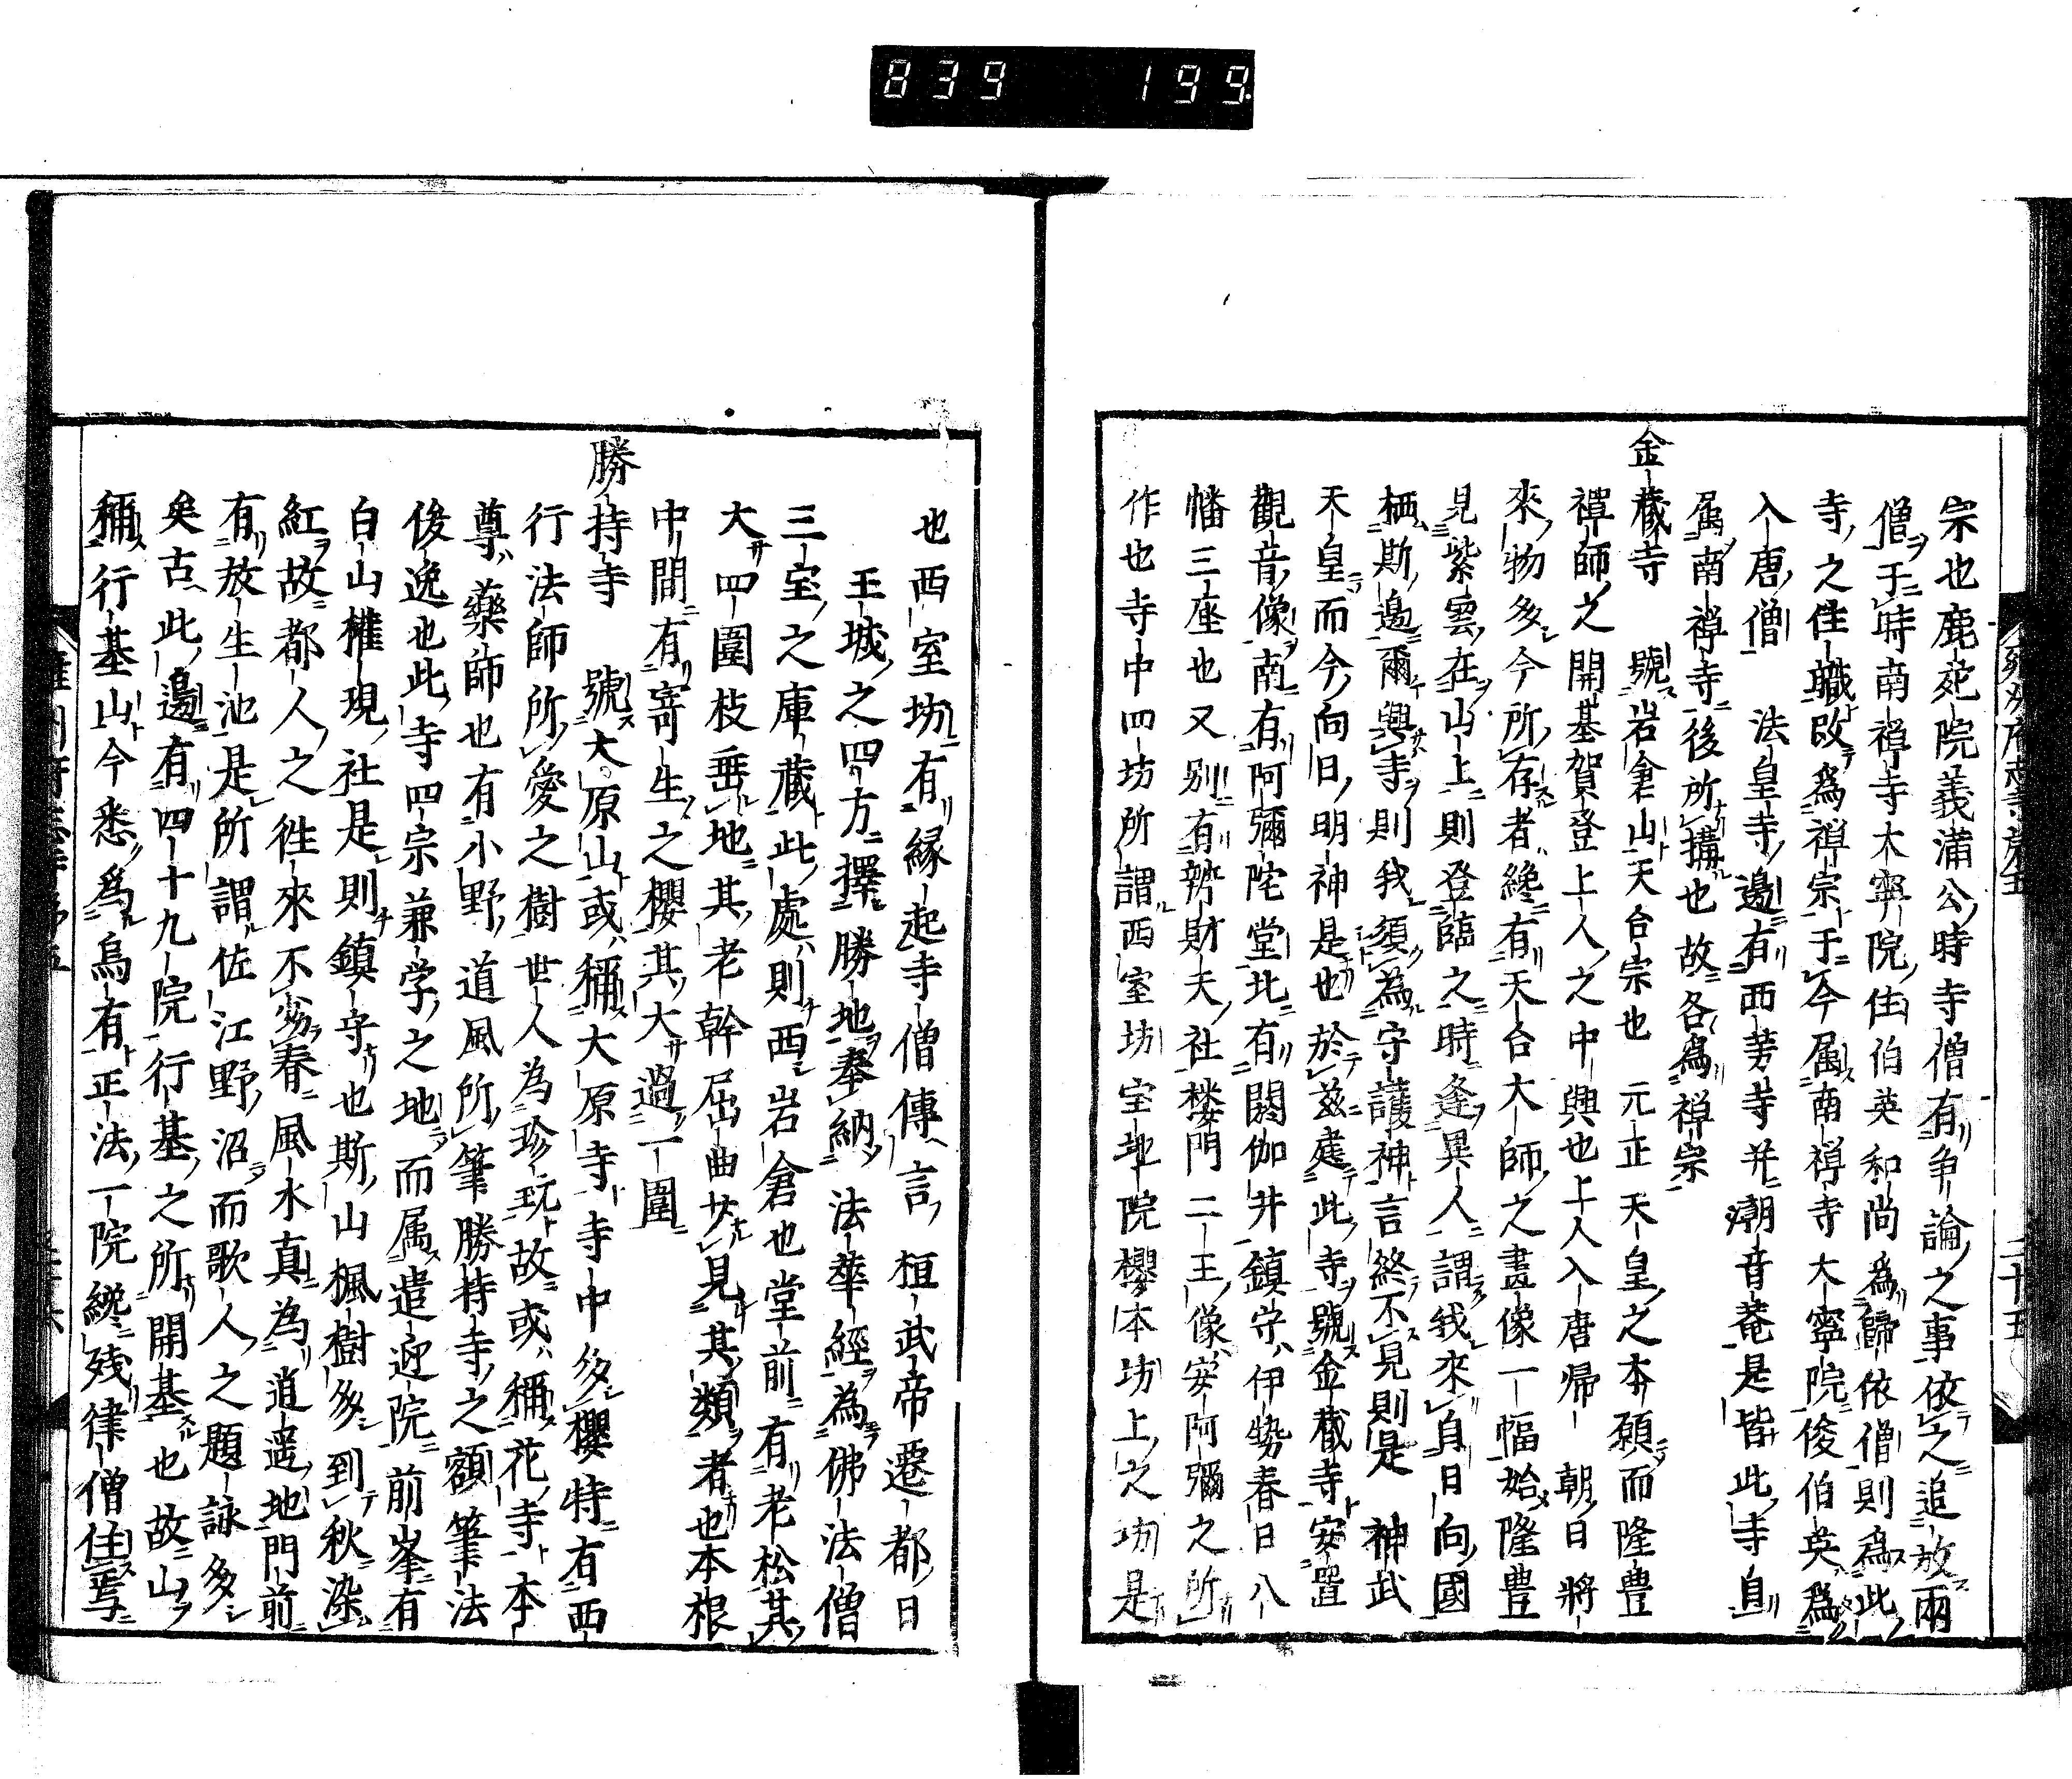 839 199
宗也鹿苑院義満公時寺僧有争論之事依之追放兩
僧于時南禅寺大寧院住伯英和尚爲歸依僧則爲此
寺之住職改爲禅宗于今属南禅寺大寧院俊伯英爲
入唐僧 法皇寺邊有西芳寺并潮音菴是皆此寺自
属南禅寺後所搆也故各爲禅宗
金藏寺 號岩倉山天台宗也 元正天皇之本願而隆豊
禅師之開基賀登上人之中興也上人入唐帰 朝日將
來物多今所存者纔有天台大師之畫像一幅始隆豊
見紫雲在山上則登臨之時逢異人謂我來自日向國
栖斯邊爾興寺則我須為守護神言終不見則是 神武
天皇而今向日明神是也於兹處此寺號金藏寺安置
觀音像南有阿彌陀堂北有閼伽井鎮守伊勢春日八
幡三座也又別有辨財天社楼門二王像安阿彌之所
作也寺中四坊所謂西室坊室地院櫻本坊上之坊是
也西室坊有縁起寺僧傳言 桓武帝遷都日
王城之四方擇勝地奉納 法華經為佛法僧
三宝之庫藏此處則西岩倉也堂前有老松其
大四圍枝垂地其老幹屈曲少見其類者也本根
中間有寄生之櫻其大過一圍
勝持寺 號大原山或稱大原寺寺中多櫻特有西
行法師所愛之樹世人為珍玩故或稱花寺本
尊藥師也有小野道風所筆勝持寺之額筆法
俊逸也此寺四宗兼学之地而属遣迎院前峯有
白山權現社是則鎮守也斯山楓樹多到秋染
紅故都人之徃來不少春風水真為逍遥地門前
有放生池是所謂佐江野沼而歌人之題詠多
矣古此邊有四十九院行基之所開基也故山
稱行基山今悉爲烏有正法一院纔殘律僧住焉